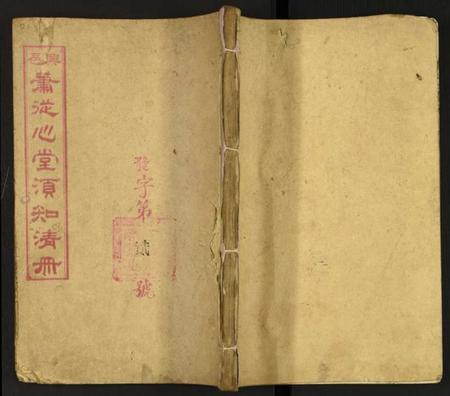 興邑
蕭從心堂須知清冊
字第
號